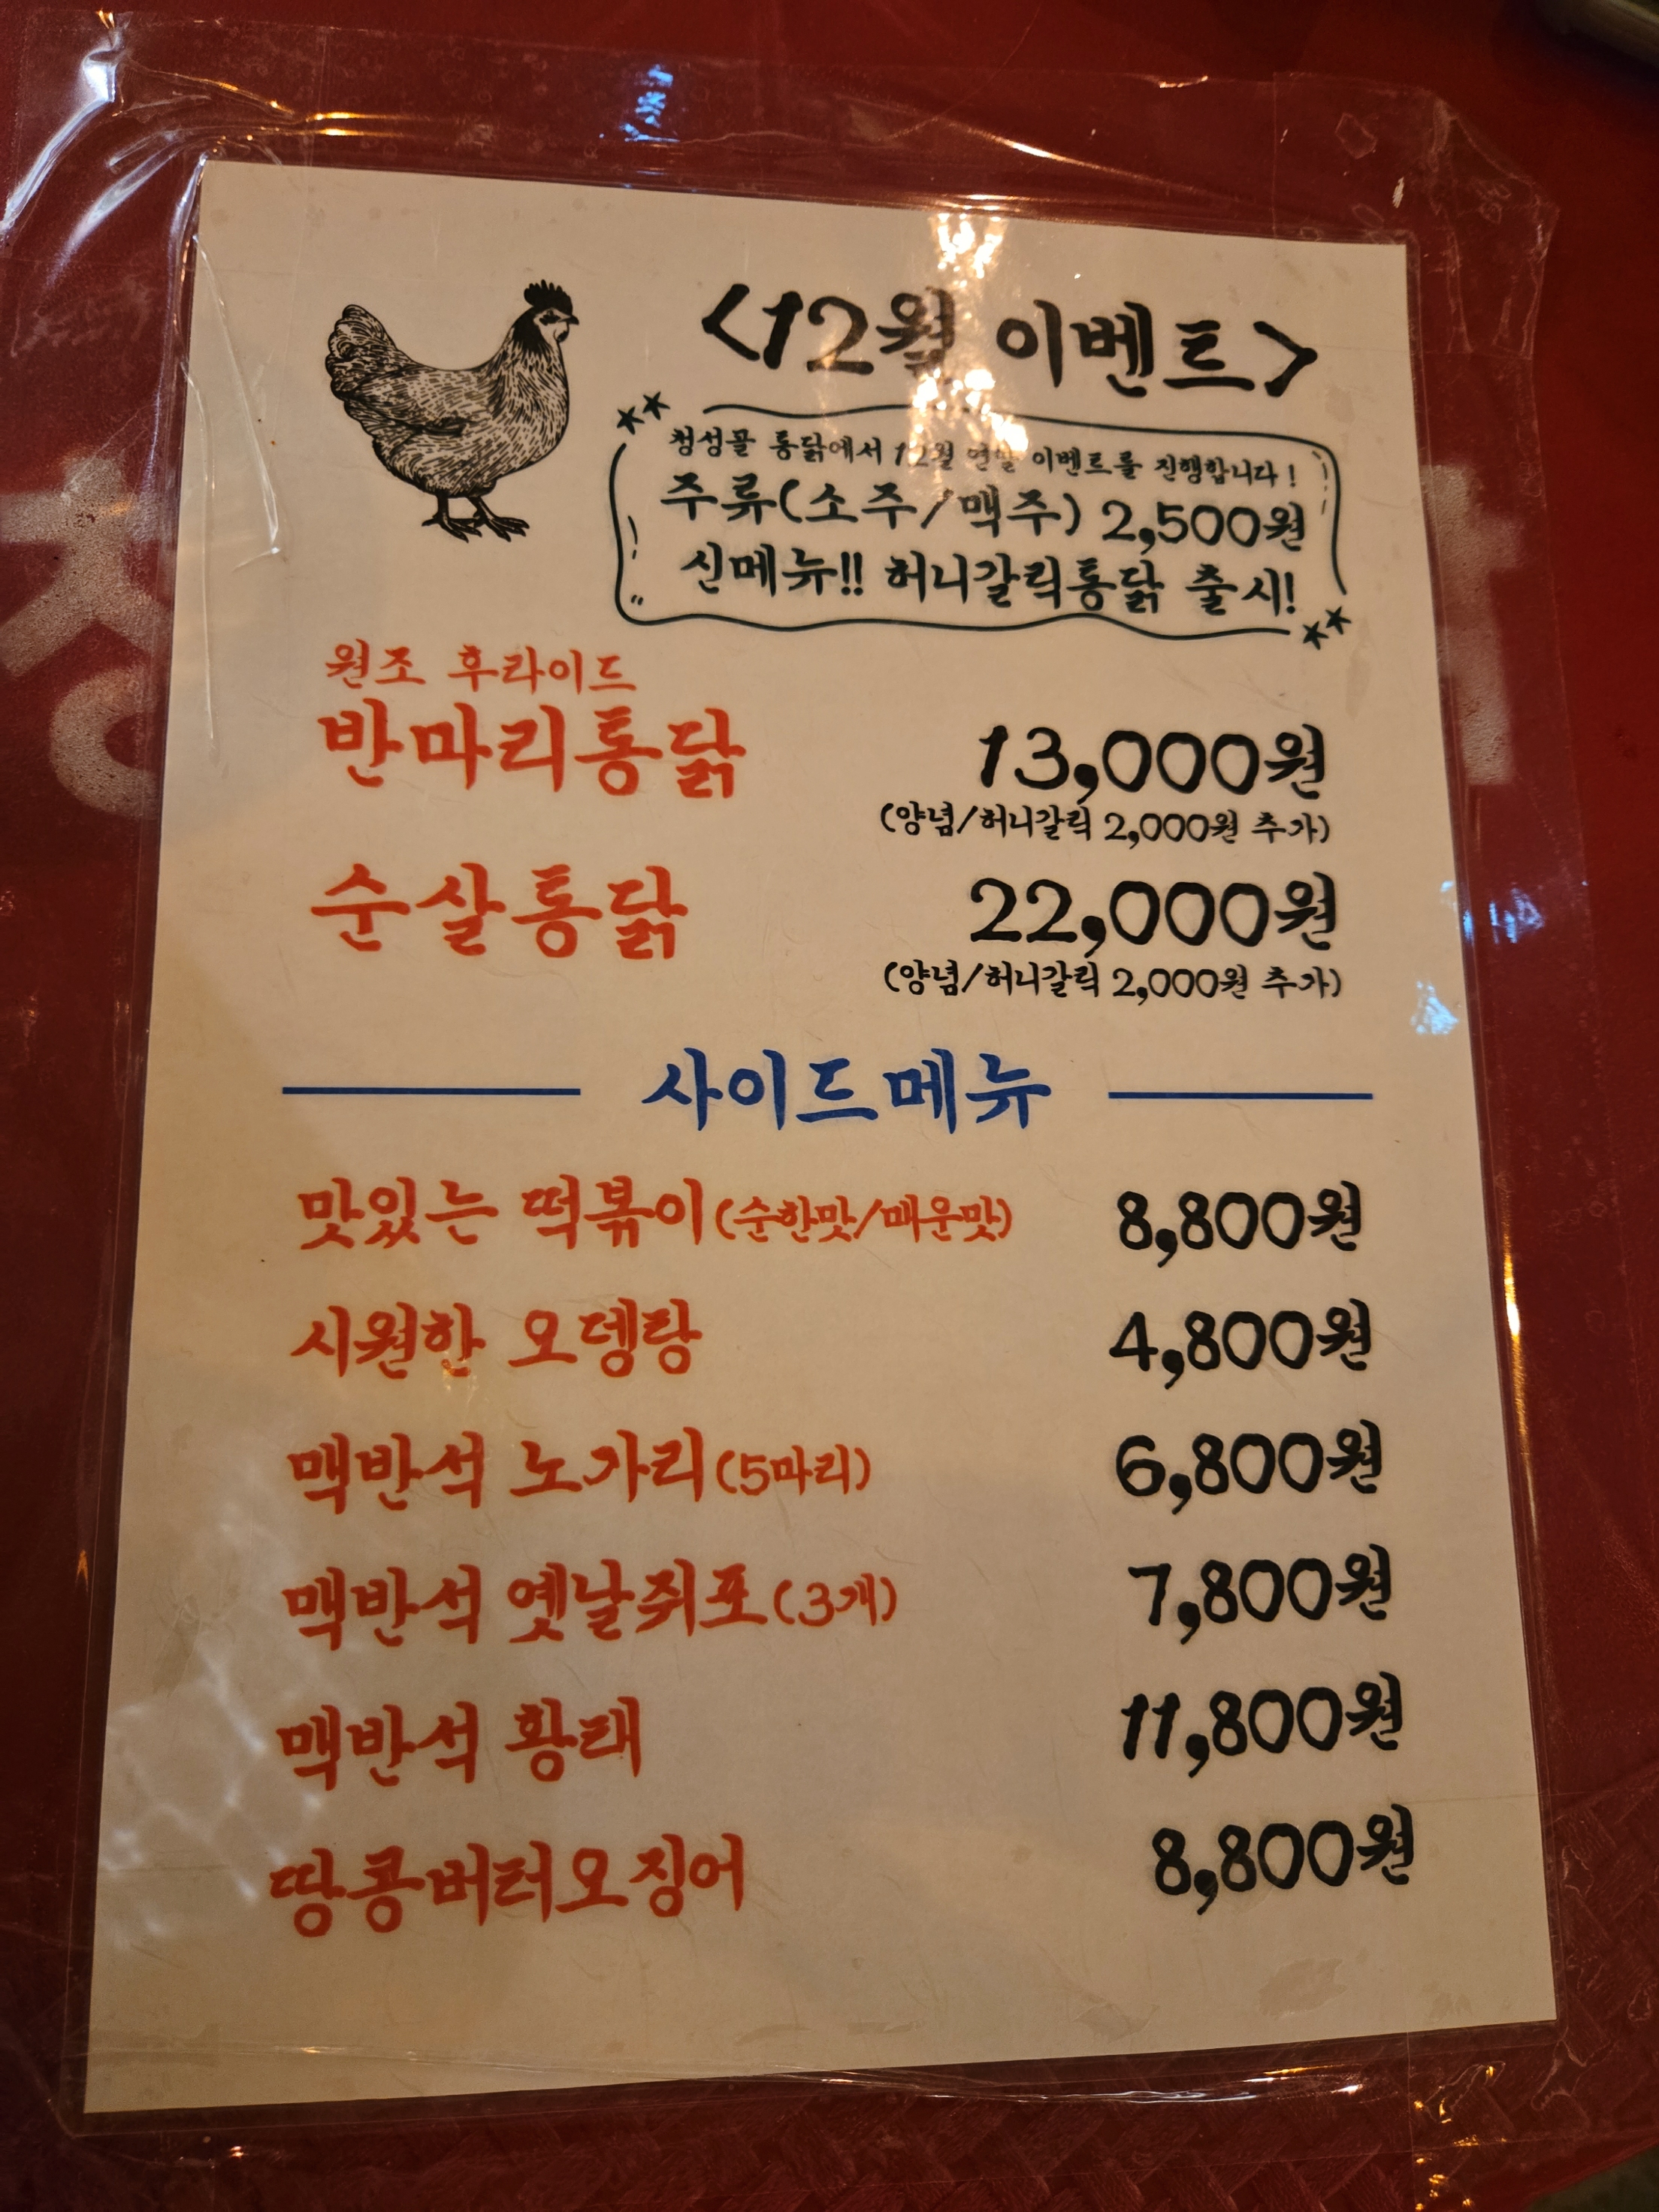 <12월 이벤트>
청성골 통닭에서 12월 연말 이벤트를 진행합니다!
주류(소주/맥주) 2,500원
신메뉴!! 허니갈릭통닭 출시!
원조 후라이드
반마리통닭 13,000원
(양념/허니갈릭 2,000원 추가)
순살통닭 22,000원
(양념/허니갈릭 2,000원 추가)
사이드메뉴
맛있는 떡볶이(순한맛/매운맛) 8,800원
시원한 오뎅탕 4,800원
맥반석 노가리(5마리) 6,800원
맥반석 옛날쥐포(3개) 7,800원
맥반석 황태 11,800원
땅콩버터오징어 8,800원